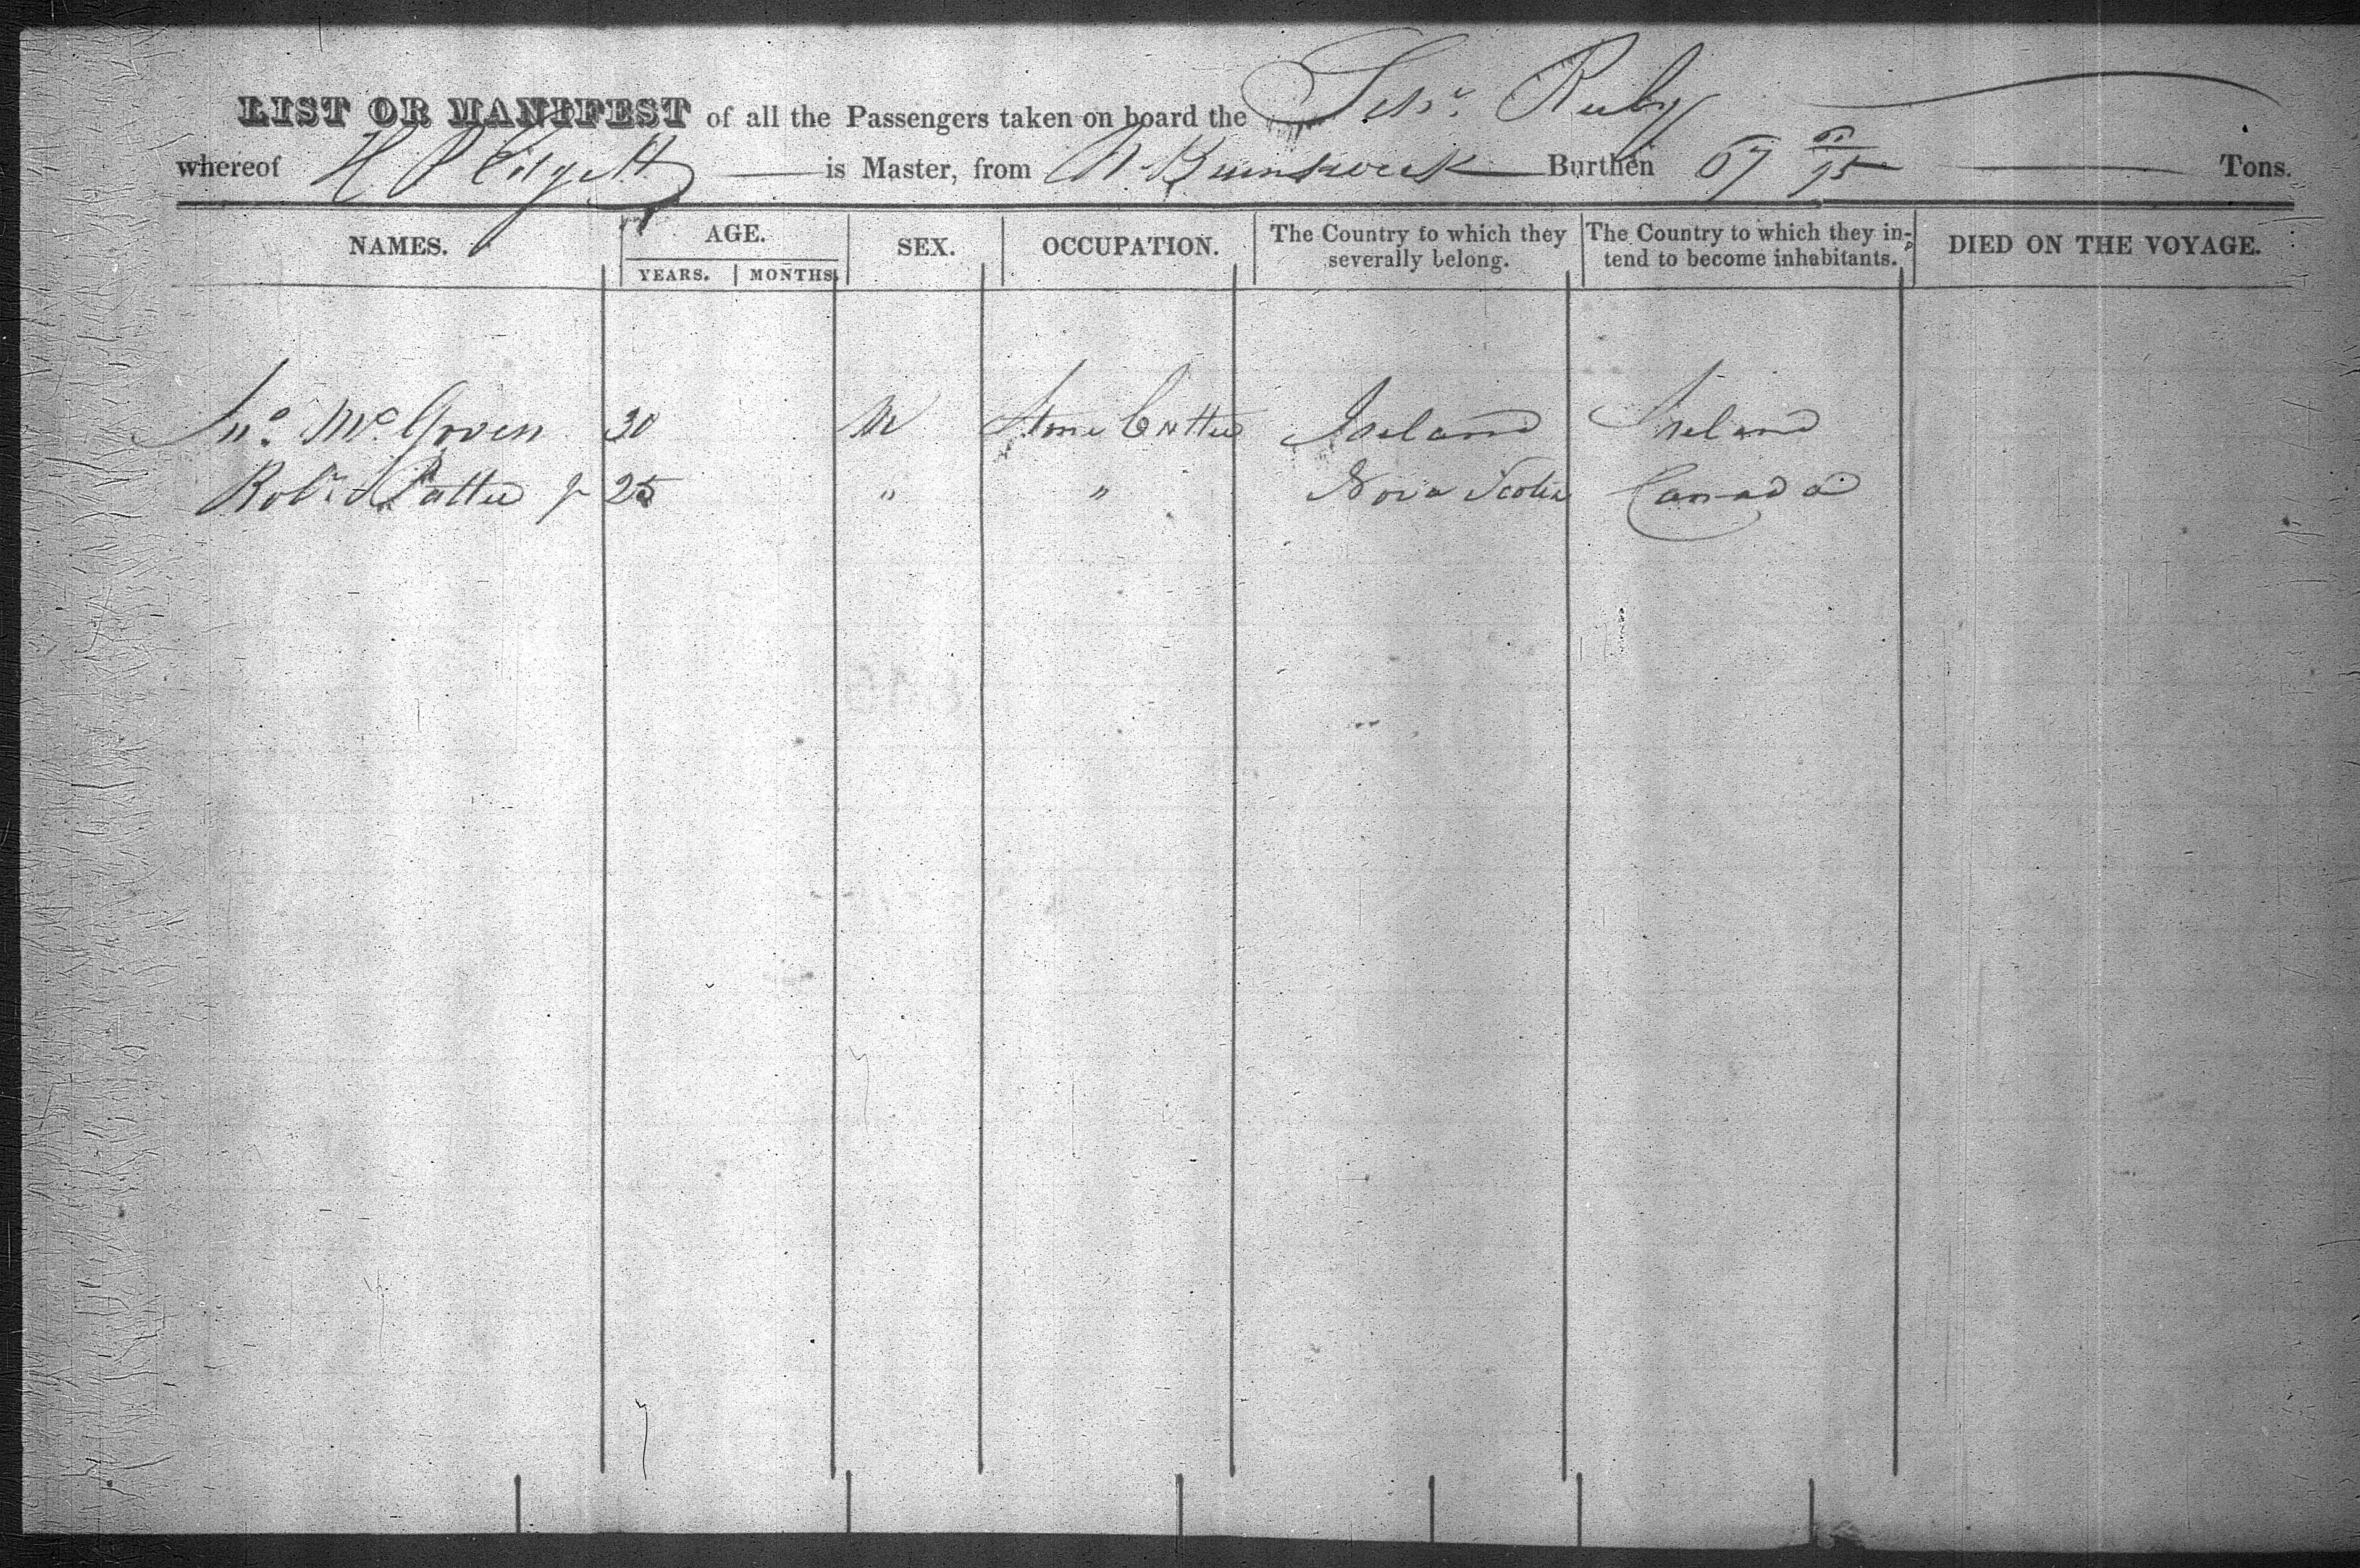 LIST OR MANIFEST of all the Passengers taken on board the Schr. Ruby
whereof H P Edgett is Master, from N. Brunswick Burthen 67 /95 Tons.
NAMES. AGE. SEX. OCCUPATION. The Country to which they severally belong. The Country to which they intend to become inhabitants. DIED ON THE VOYAGE.
YEARS. MONTHS.
Jno. McGoven 30 M Stone Cutter Ireland Ireland
Robt. Patter 25 " " Nova Scotia Canada